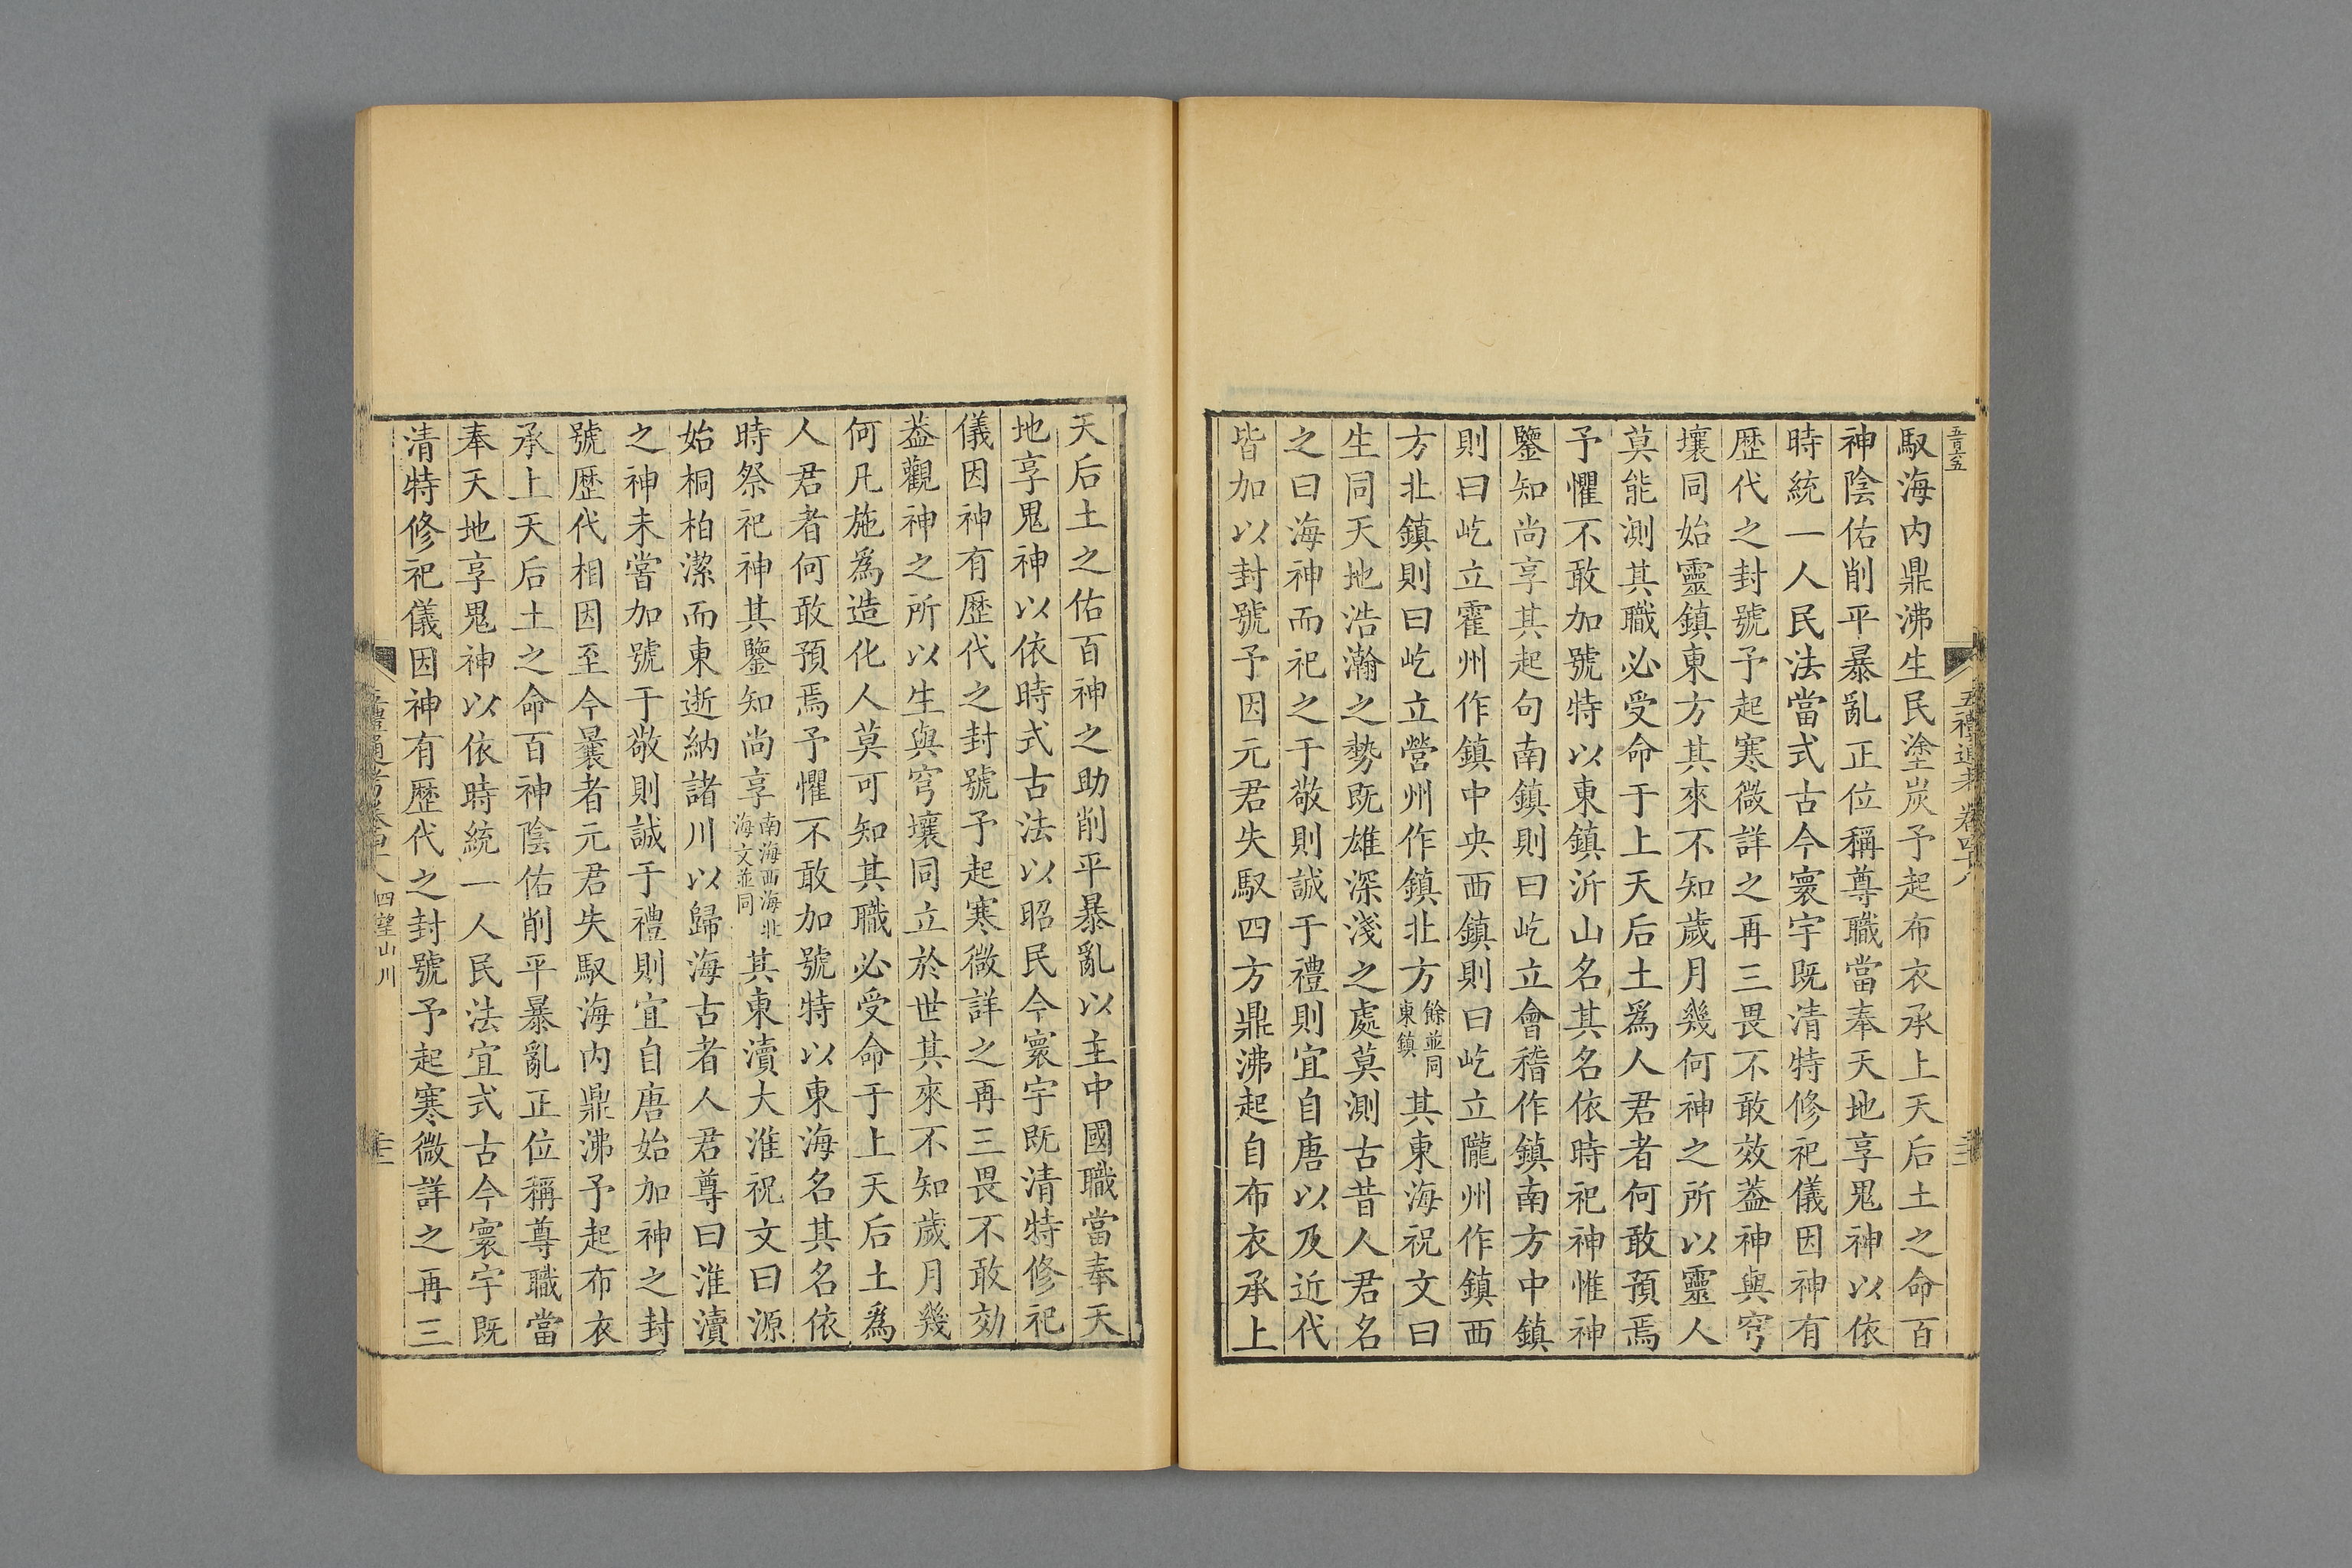 馭海内鼎沸生民塗炭予起布衣承上天后土之命百
神陰佑削平暴亂正位稱尊職當奉天地享鬼神以依
時統一人民法當式古今寰宇既清特修祀儀因神有
歷代之封號予起寒微詳之再三畏不敢效葢神與穹
壤同始靈鎮東方其來不知歲月幾何神之所以靈人
莫能測其職必受命于上天后土爲人君者何敢預焉
予懼不敢加號特以東鎮沂山名其名依時祀神惟神
鑒知尚享其起句南鎮則曰屹立會稽作鎮南方中鎮
則曰屹立霍州作鎮中央西鎮則曰屹立隴州作鎮西
方北鎮則曰屹立營州作鎮北方餘並同東鎮其東海祝文曰
生同天地浩瀚之勢既雄深淺之處莫測古昔人君名
之曰海神而祀之于敬則誠于禮則宜自唐以及近代
皆加以封號予因元君失馭四方鼎沸起自布衣承上
天后土之佑百神之助削平暴亂以主中國職當奉天
地享鬼神以依時式古法以昭民今寰宇既清特修祀
儀因神有歷代之封號予起寒微詳之再三畏不敢効
葢觀神之所以生與穹壤同立於世其來不知歲月幾
何凡施爲造化人莫可知其職必受命于上天后土爲
人君者何敢預焉予懼不敢加號特以東海名其名依
時祭祀神其鑒知尚享南海西海北海文並同其東瀆大淮祝文曰源
始桐柏潔而東逝納諸川以歸海古者人君尊曰淮瀆
之神未嘗加號于敬則誠于禮則宜自唐始加神之封
號歷代相因至今曩者元君失馭海内鼎沸予起布衣
承上天后土之命百神陰佑削平暴亂正位稱尊職當
奉天地享鬼神以依時統一人民法宜式古今寰宇既
清特修祀儀因神有歷代之封號予起寒微詳之再三
四望山川